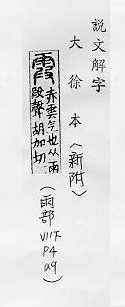 説文解字
大徐本（新附）
霞 赤雲气也从雨
叚聲胡加切
（雨部
VII下
P4
a9）